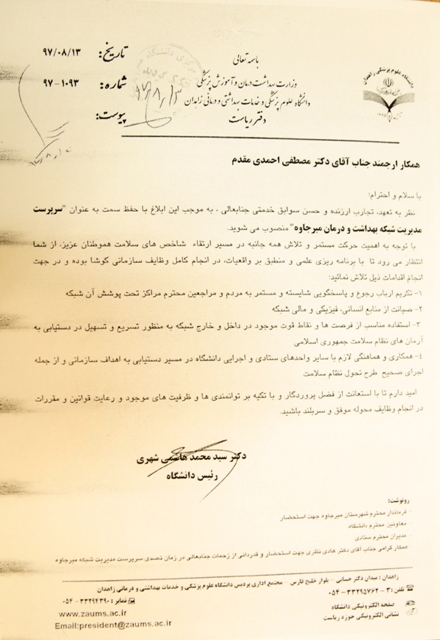 باسمه تعالی
وزارت بهداشت درمان و آموزش پزشکی
دانشگاه علوم پزشکی و خدمات بهداشتی و درمانی زاهدان
دفتر ریاست
تاریخ: ۹۷/۰۸/۱۳
شماره: ۱۰۹۳-۹۷
پیوست:
دانشگاه علوم پزشکی زاهدان
همکار ارجمند جناب آقای دکتر مصطفی احمدی مقدم
با سلام و احترام؛
نظر به تعهد، تجارب ارزنده و حسن سوابق خدمتی جنابعالی ، به موجب این ابلاغ با حفظ سمت به عنوان "سرپرست
مدیریت شبکه بهداشت و درمان میرجاوه" منصوب می شوید.
با توجه به اهمیت حرکت مستمر و تلاش همه جانبه در مسیر ارتقاء شاخص های سلامت هموطنان عزیز، از شما
انتظار می رود تا با برنامه ریزی علمی و منطبق بر واقعیات، در انجام کامل وظایف سازمانی کوشا بوده و در جهت
انجام اقدامات ذیل تلاش نمائید:
۱- تکریم ارباب رجوع و پاسخگویی شایسته و مستمر به مردم و مراجعین محترم مراکز تحت پوشش آن شبکه
۲- صیانت از منابع انسانی، فیزیکی و مالی شبکه
۳- استفاده مناسب از فرصت ها و نقاط قوت موجود در داخل و خارج شبکه به منظور تسریع و تسهیل در دستیابی به
آرمان های نظام سلامت جمهوری اسلامی
۴- همکاری و هماهنگی لازم با سایر واحدهای ستادی و اجرایی دانشگاه در مسیر دستیابی به اهداف سازمانی و از جمله
اجرای صحیح طرح تحول نظام سلامت
امید دارم تا با استعانت از فضل پروردگار و با تکیه بر توانمندی ها و ظرفیت های موجود و رعایت قوانین و مقررات
در انجام وظایف محوله موفق و سربلند باشید.
دکتر سید محمد هاشمی شهری
رئیس دانشگاه
رونوشت:
فرماندار محترم شهرستان میرجاوه جهت استحضار
معاونین محترم دانشگاه
مدیران محترم ستادی
همکار گرامی جناب آقای دکتر هادی نظری جهت استحضار و قدردانی از زحمات جنابعالی در زمان تصدی سرپرست مدیریت شبکه میرجاوه
زاهدان : میدان دکتر حسابی - بلوار خلیج فارس مجتمع اداری پردیس دانشگاه علوم پزشکی و خدمات بهداشتی و درمانی زاهدان
تلفن : ۳ - ۳۳۲۹۵۷۶۲ - ۰۵۴
نمابر : ۳۳۲۹۴۳۹۰ - ۰۵۴
صفحه الکترونیکی دانشگاه
www.zaums.ac.ir
نشانی الکترونیکی حوزه ریاست
Email:president@zaums.ac.ir